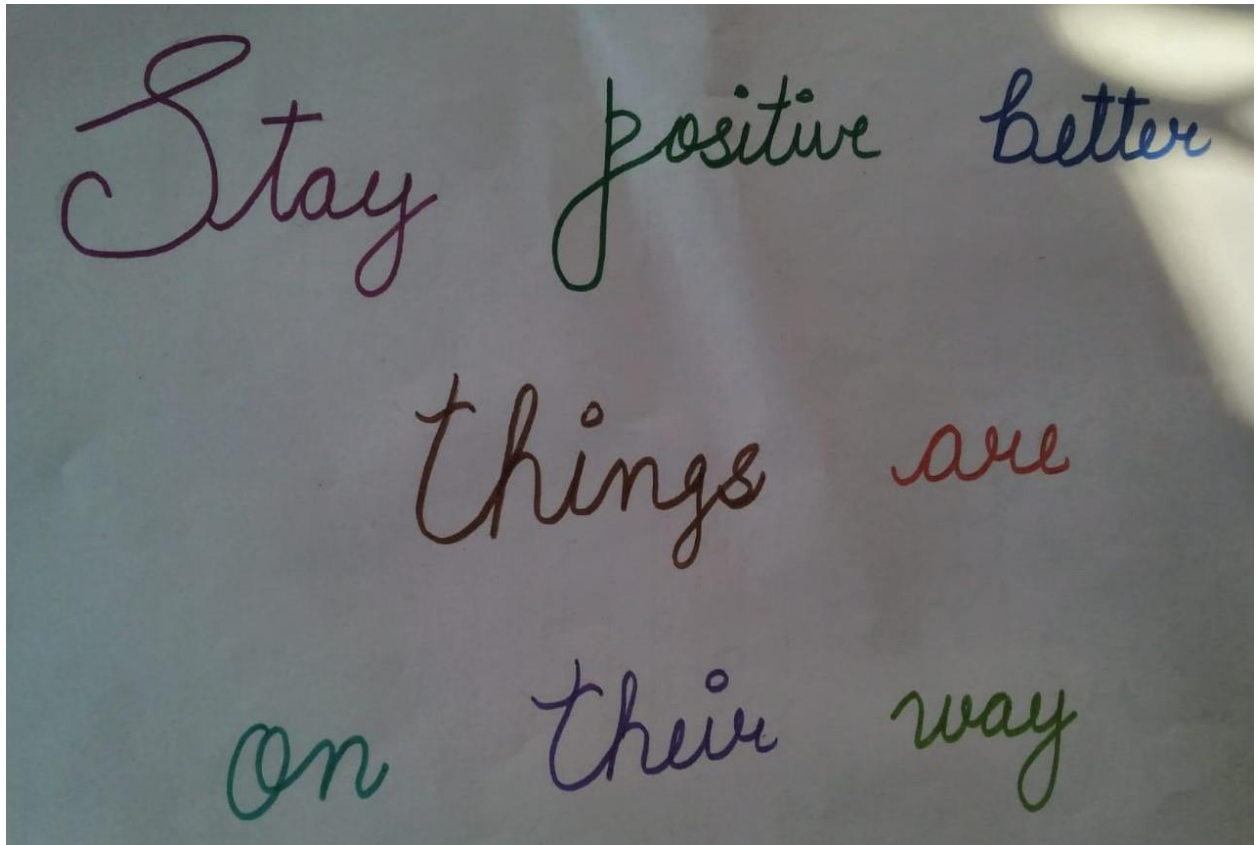 Stay positive better
things are
on their way